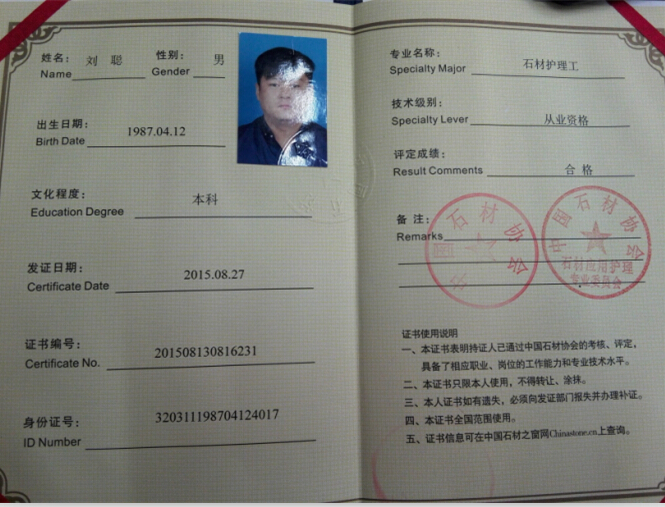 姓名： 刘 聪 性别： 男
Name Gender
出生日期：
Birth Date 1987.04.12
文化程度：
Education Degree 本科
发证日期：
Certificate Date 2015.08.27
证书编号：
Certificate No. 201508130816231
身份证号：
ID Number 320311198704124017
专业名称：
Specialty Major 石材护理工
技术级别：
Specialty Lever 从业资格
评定成绩：
Result Comments 合 格
备 注：
Remarks
中国石材协会
中国石材协会
石材应用护理
专业委员会
证书使用说明
一、本证书表明持证人已通过中国石材协会的考核、评定，
具备了相应职业、岗位的工作能力和专业技术水平。
二、本证书只限本人使用，不得转让、涂抹。
三、本人证书如有遗失，必须向发证部门报失并办理补证。
四、本证书全国范围使用。
五、证书信息可在中国石材之窗网Chinastone.cn上查询。